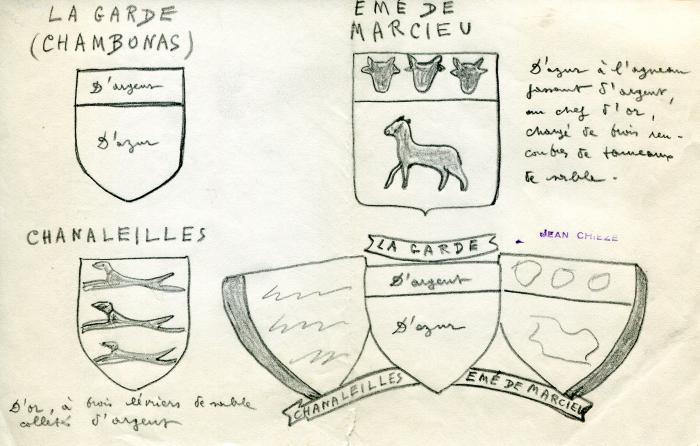 LA GARDE
(CHAMBONAS)
D'argent
D'azur
EMÉ DE
MARCIEU
D'azur à l'agneau
passant d'argent,
au chef d'or,
chargé de trois ren-
contres de taureaux
de sable.
CHANALEILLES
D'or, à trois lévriers de sable
colletés d'argent
JEAN CHIEZE
LA GARDE
D'argent
D'azur
CHANALEILLES
EMÉ DE MARCIEU